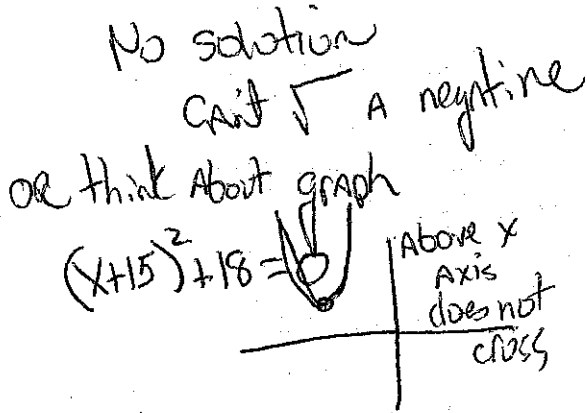 No solution
Can't √ A negative
OR think About graph
(x+15)² + 18 = 0
Above x
Axis
does not
cross